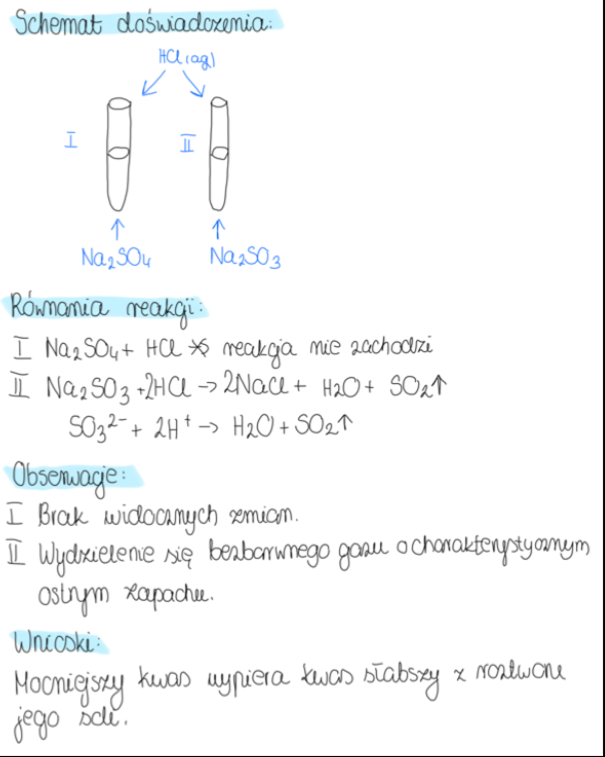 Schemat doświadczenia:
HCl(aq)
I
II
Na₂SO₄
Na₂SO₃
Równania reakcji:
I Na₂SO₄ + HCl ↛ reakcja nie zachodzi
II Na₂SO₃ + 2HCl → 2NaCl + H₂O + SO₂↑
SO₃²⁻ + 2H⁺ → H₂O + SO₂↑
Obserwacje:
I Brak widocznych zmian.
II Wydzielenie się bezbarwnego gazu o charakterystycznym
ostrym zapachu.
Wnioski:
Mocniejszy kwas wypiera kwas słabszy z roztworu
jego soli.